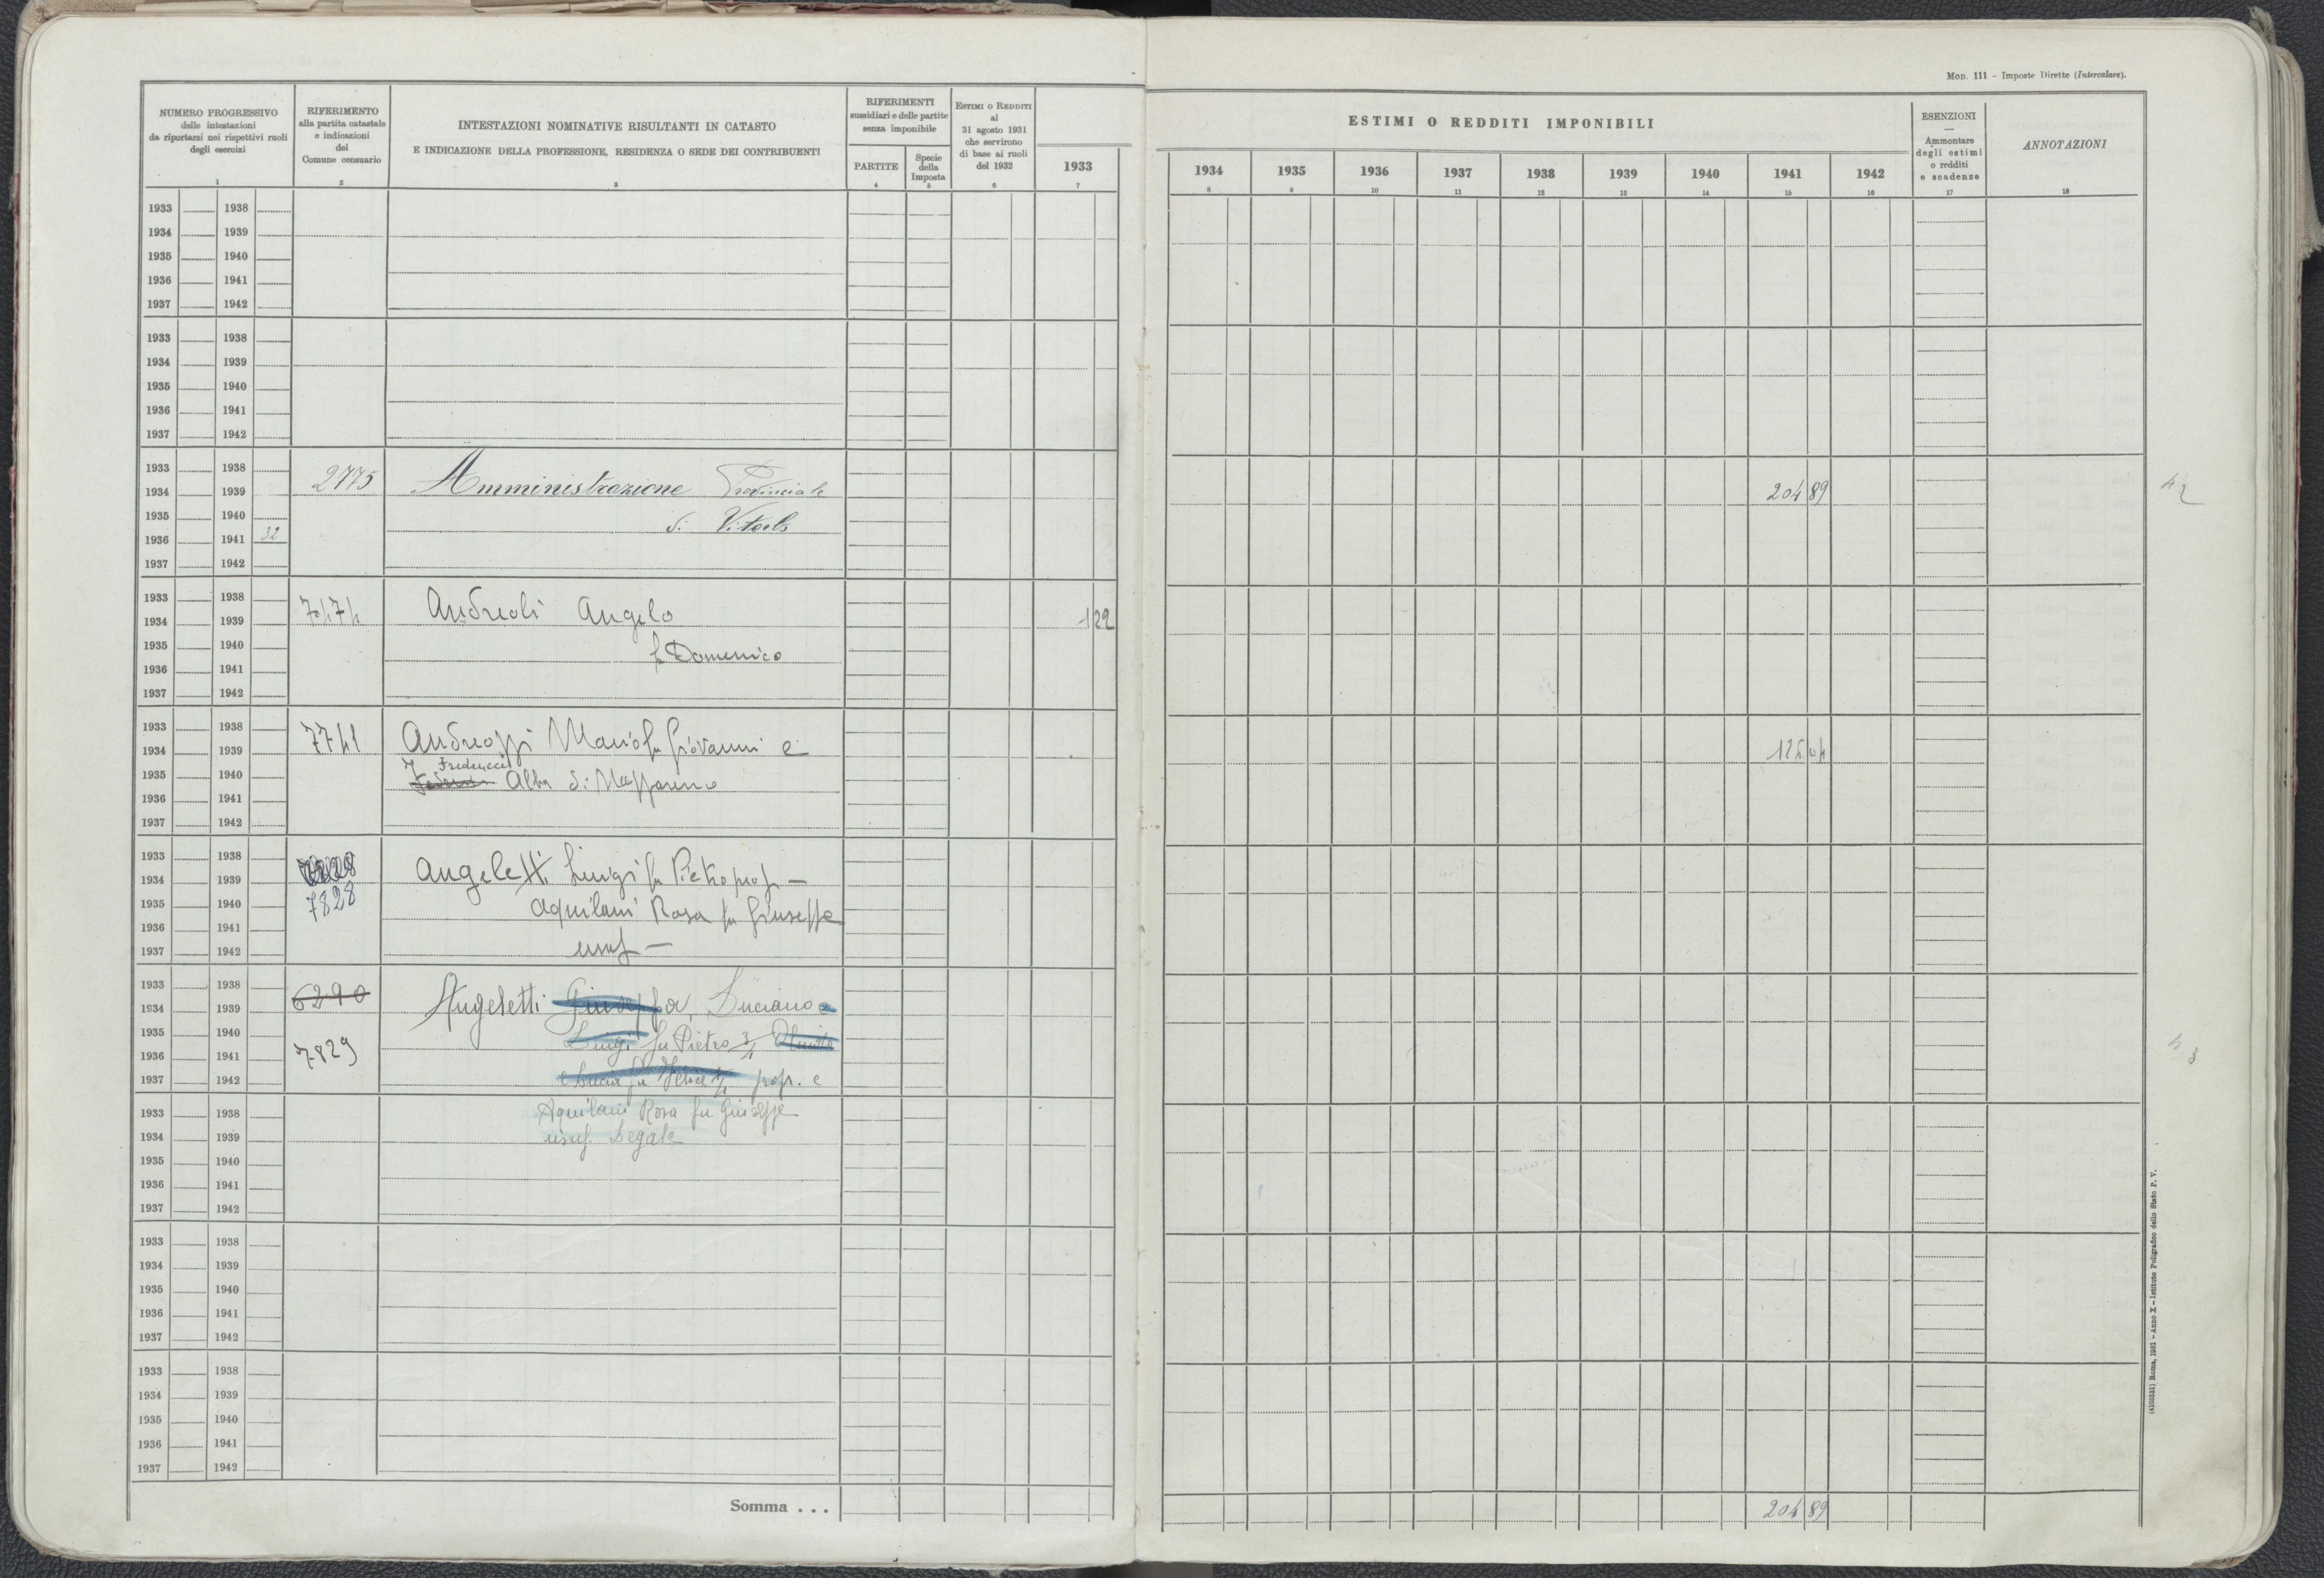 Mod. 111 – Imposte Dirette (Intercalare).
NUMERO PROGRESSIVO
delle intestazioni
da riportarsi nei rispettivi ruoli
degli esercizi
1
RIFERIMENTO
alla partita catastale
e indicazioni
del
Comune censuario
2
INTESTAZIONI NOMINATIVE RISULTANTI IN CATASTO
E INDICAZIONE DELLA PROFESSIONE, RESIDENZA O SEDE DEI CONTRIBUENTI
3
RIFERIMENTI
sussidiari e delle partite
senza imponibile
PARTITE
4
Specie
della
Imposta
5
Estimi o Redditi
al
31 agosto 1931
che servirono
di base ai ruoli
del 1932
6
1933
7
ESTIMI O REDDITI IMPONIBILI
1934 1935 1936 1937 1938 1939 1940 1941 1942
8 9 10 11 12 13 14 15 16
ESENZIONI
—
Ammontare
degli estimi
o redditi
e scadenze
17
ANNOTAZIONI
18
1933 1938
1934 1939
1935 1940
1936 1941
1937 1942
1933 1938
1934 1939
1935 1940
1936 1941
1937 1942
1933 1938
1934 1939 2775 Amministrazione Provinciale 204 89
1935 1940 di Viterbo
1936 1941 32
1937 1942
1933 1938
1934 1939 Andreoli Angelo 1 22
1935 1940 fu Domenico
1936 1941
1937 1942
1933 1938
1934 1939 7741 Andreozzi Mario fu Giovanni e
1935 1940 Federucci
Alba di Nazzareno
1936 1941
1937 1942
1933 1938
1934 1939 Angeletti Luigi fu Pietro prop –
1935 1940 7828 Aquilani Rosa fu Giuseppe
1936 1941
1937 1942 usuf –
1933 1938 6290
1934 1939 Angeletti Giuseppa, Luciano e
1935 1940 Luigi fu Pietro 3/4
1936 1941 7829
1937 1942 e Lucia fu Felice 1/4 propr. e
1933 1938 Aquilani Rosa fu Giuseppe
1934 1939 usuf. Legale
1935 1940
1936 1941
1937 1942
1933 1938
1934 1939
1935 1940
1936 1941
1937 1942
1933 1938
1934 1939
1935 1940
1936 1941
1937 1942
Somma . . . 204 89
(4105531) Roma, 1931 – Anno X – Istituto Poligrafico dello Stato P. V.